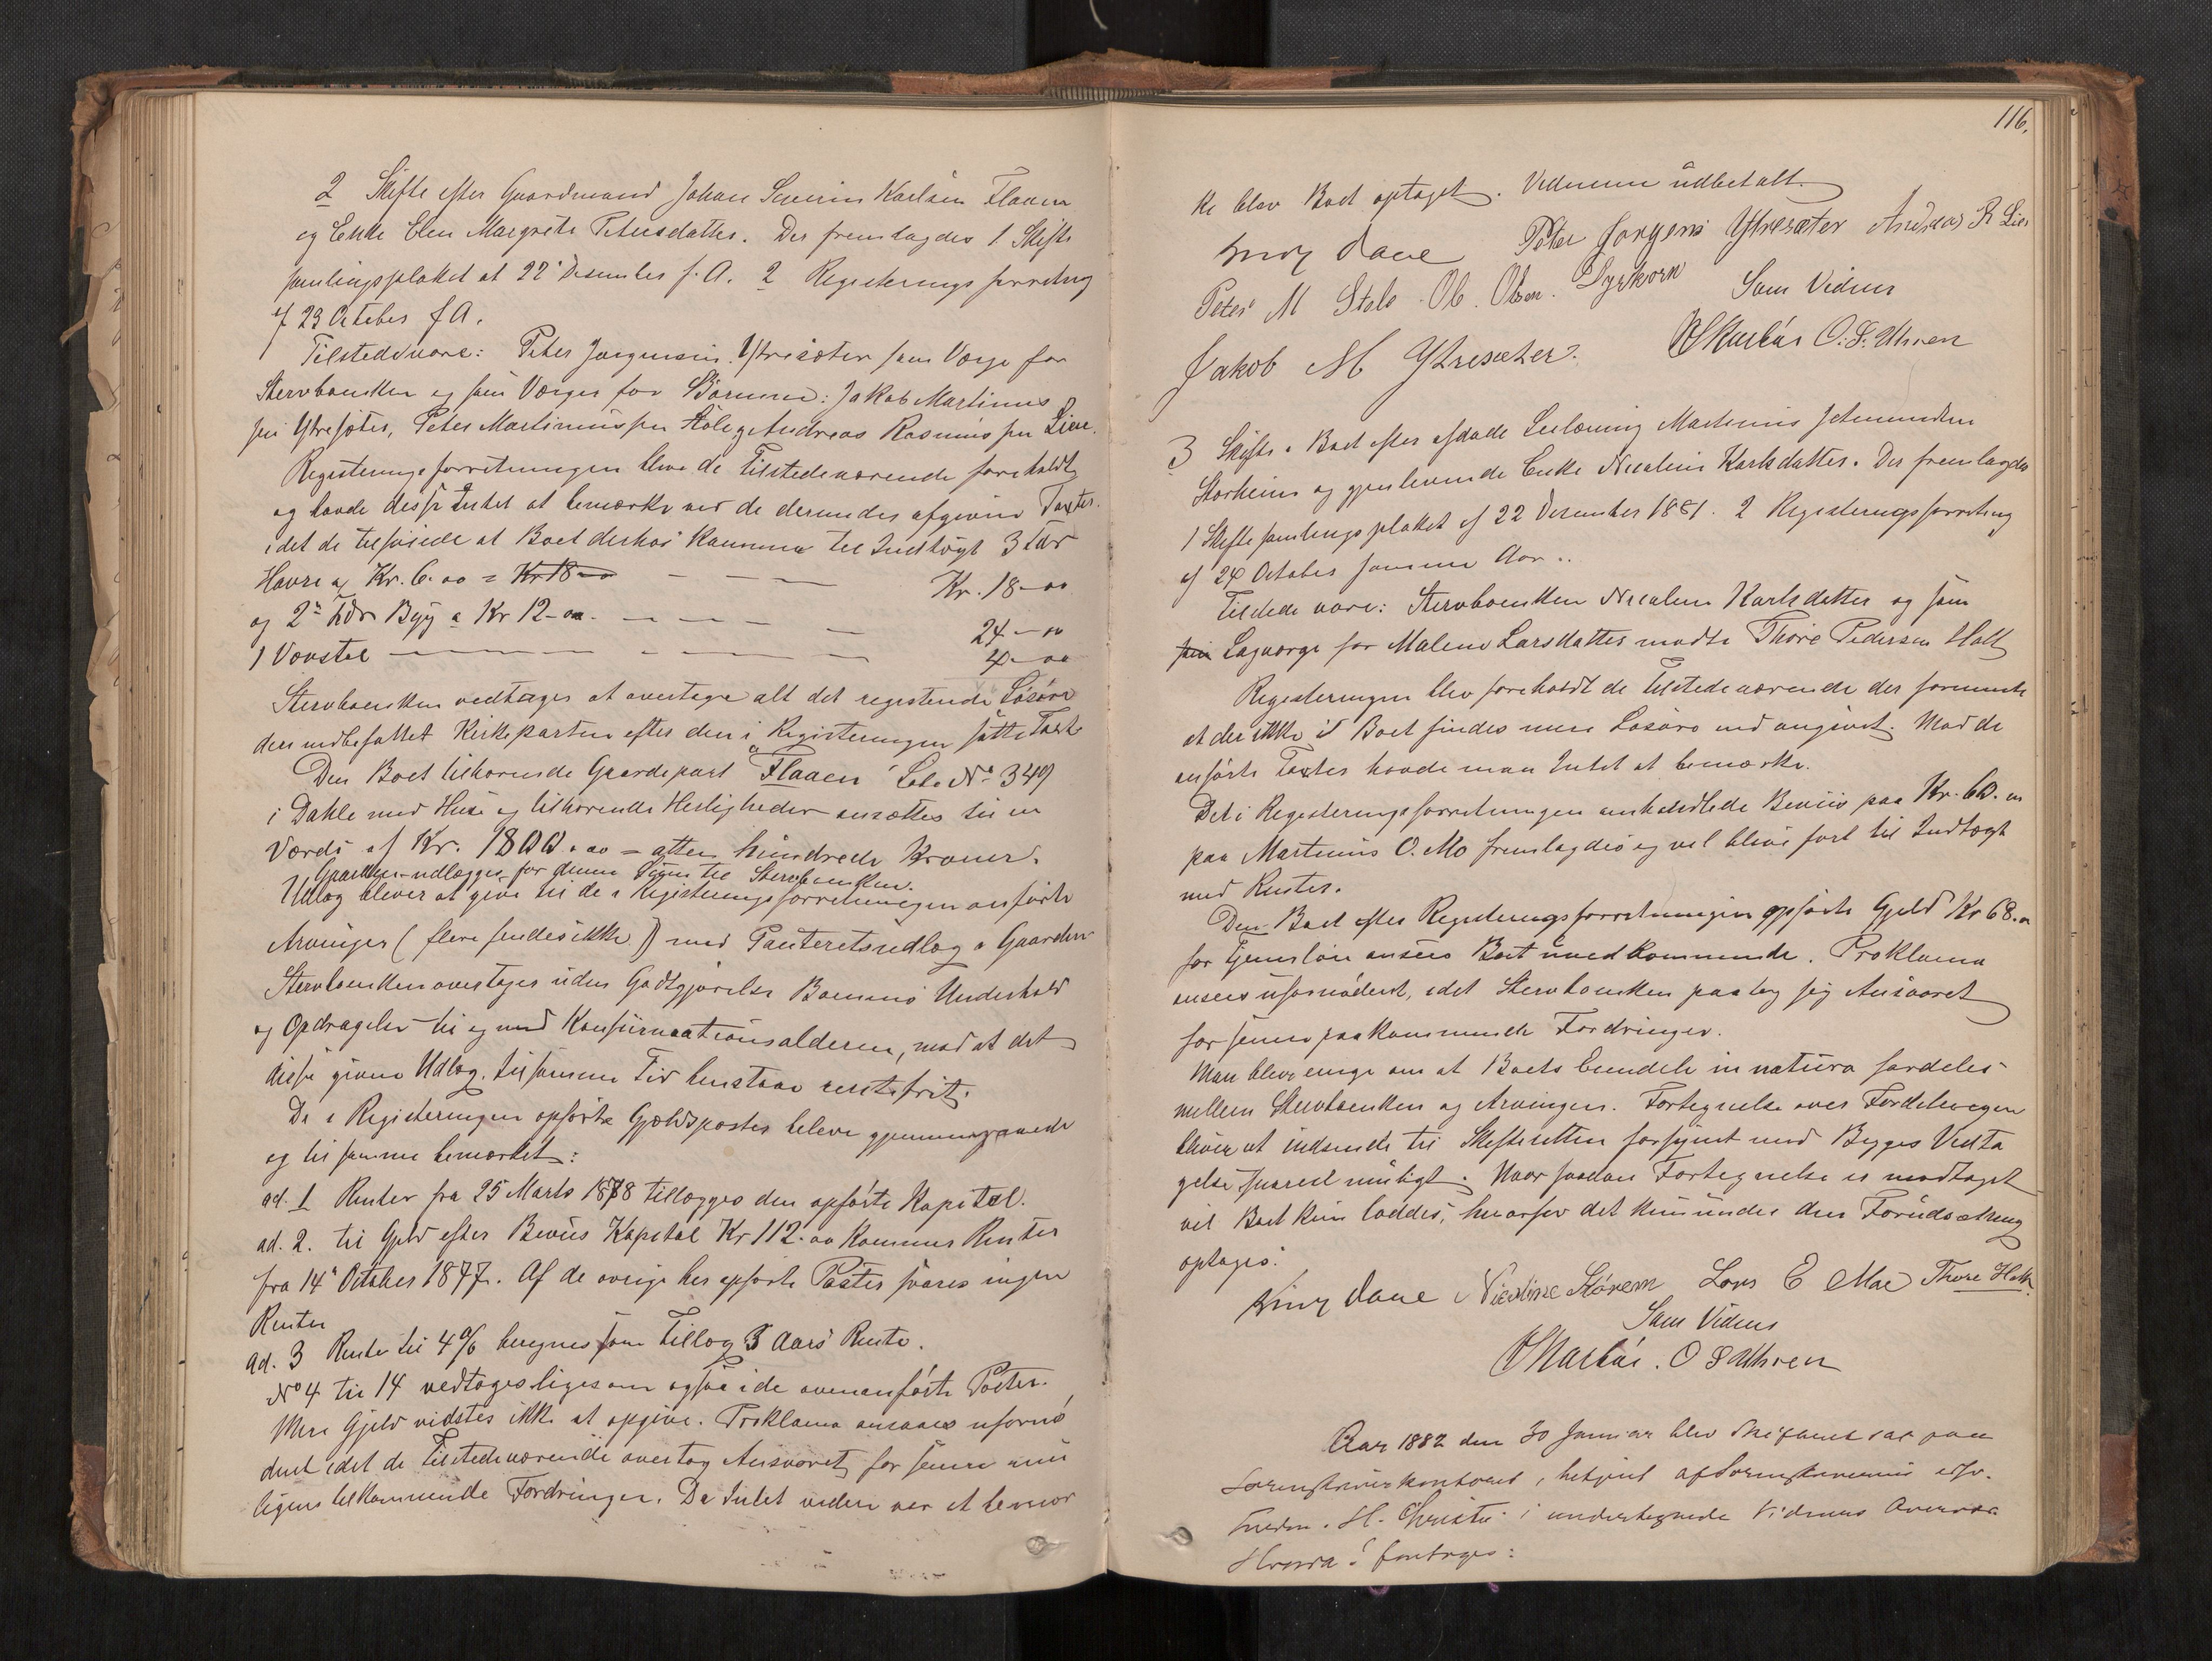 2 Skifte efter Gaardmand Johan Severin Karlsen Flaaen
og Enke Elen Margrete Petersdatter. Der fremlagdes 1 Skifte
samlingsplakat af 22 Desember f. A. 2 Registerings forretning
af 29 October f A.
Tilstede vare: Peter Jørgensen Ytresæter som Værge for
Stervboenken og som Værger for Børnene: Jakob Martinus
sen Ytresæter, Peter Martinussen Støle og Andreas Rasmussen Lien.
Registeringsforretningen blev de Tilstedeværende foreholdt
og havde disse Intet at bemærke ved de derunder afgivne Taxter.
idet de tilføiede at Boet derhos kommer til Indtægt 3 Tdr
Havre a Kr. 6.00 = Kr 18-00 Kr. 18-00
og 2 Tdr Byg a Kr 12-00. 24-00
1 Vævstol 4-00
Stervboenken vedtages at overtage alt det registerede Løsøre
deri indbefattet Kirkeparten efter den i Registeringen satte Taxt.
Den Boet tilhørende Gaardepart Flaaen Lebe No 349
i Dahle med Huse og tilhørende Herligheder ansættes til en
Værdi af Kr. 1800.00 = atten hundrede Kroner.
Gaarden udlægges for denne Sum til Stervboenken.
Udlæg bliver at give til de i Registeringsforretningen anførte
Arvinger (flere findes ikke) med Panteretsudlæg i Gaarden
Stervboenken overtager uden Godtgjørelse Børnenes Underhold
og Opdragelse til og med Konfirmationsalderen, mod at det
disse givne Udlæg til samme Tid henstaar rentefrit.
De i Registeringen opførte Gjældsposter bleve gjennemgaaede
og til samme bemærket:
ad. 1 Renter fra 25 Marts 1878 tillægges den opførte Kapital.
ad. 2. til Gjeld efter Beviis Kapital Kr 112.00 kommer Renter
fra 14 October 1877. Af de øvrige her opførte Poster svares ingen
Renter
ad. 3 Renter til 4 % beregnes som Tillæg 3 Aars Rente.
No 4 til 14 vedtages ligesom ogsaa i de ovenanførte Poster.
Mere Gjeld vidstes ikke at opgive. Proklama ansaaes ufornø
dent idet de Tilstedeværende overtog Ansvaret for senere mu
ligens tilkommende Fordringer. Da Intet videre var at bemær
116.
ke blev Boet optaget. Vidnerne udbetalt.
Peter Jørgens Ytresæter Andreas R Lien
Peter M Støle Ol. Olsen. Dyrkorn Som Vidner
Jakob M Ytresæter. O. S. Uhren
3 Skifte i Boet efter afdøde Leilænding Martinus Johannessen
Storheim og gjenlevende Enke Nicoline Karlsdatter. Der fremlagdes
1 Skiftesamlingsplakat af 22 Desember 1881. 2 Registeringsforretning
af 24 October samme Aar..
Tilstede vare: Stervboenken Nicoline Karlsdatter og som
Lagværge for Malene Larsdatter mødte Thore Pedersen Holt
Registeringen blev foreholdt de Tilstedeværende der formente
at der ikke i Boet findes mere Løsøre end angivet. Mod de
anførte Taxter havde man Intet at bemærke.
Det i Registeringsforretningen omhandlede Beviis paa Kr. 60.00
paa Martinus O. Mo fremlagdes og vil blive ført til Indtægt
med Renter.
Den Boet efter Registeringsforretningen opførte Gjeld Kr 68.00
for Tjenerløn ansees Boet uvedkommende. Proklama
ansees ufornødent, idet Stervboenken paatog sig Ansvaret
for senere paakommende Fordringer.
Man blev enige om at Boets Eiendele in natura fordeles
mellem Stervboenken og Arvingen. Fortegnelse over Fordelingen
bliver at indsende til Skifteretten forsynet med Begges Vedta
gelse snarest muligt. Naar saadan Fortegnelse er modtaget
vil Boet kun loddes, hvorfor det kun under den Forudsætning
optages.
Nicoline Storem Lars E Mo Thore Holt
Som Vidner
O S Uhren
Aar 1882 den 30 Januar blev Skifteret sat paa
Sorenskriverkontoret, betjent af Sorenskriverens
H. Christie i undertegnede Vidners Overvær
Hvorda foretages: